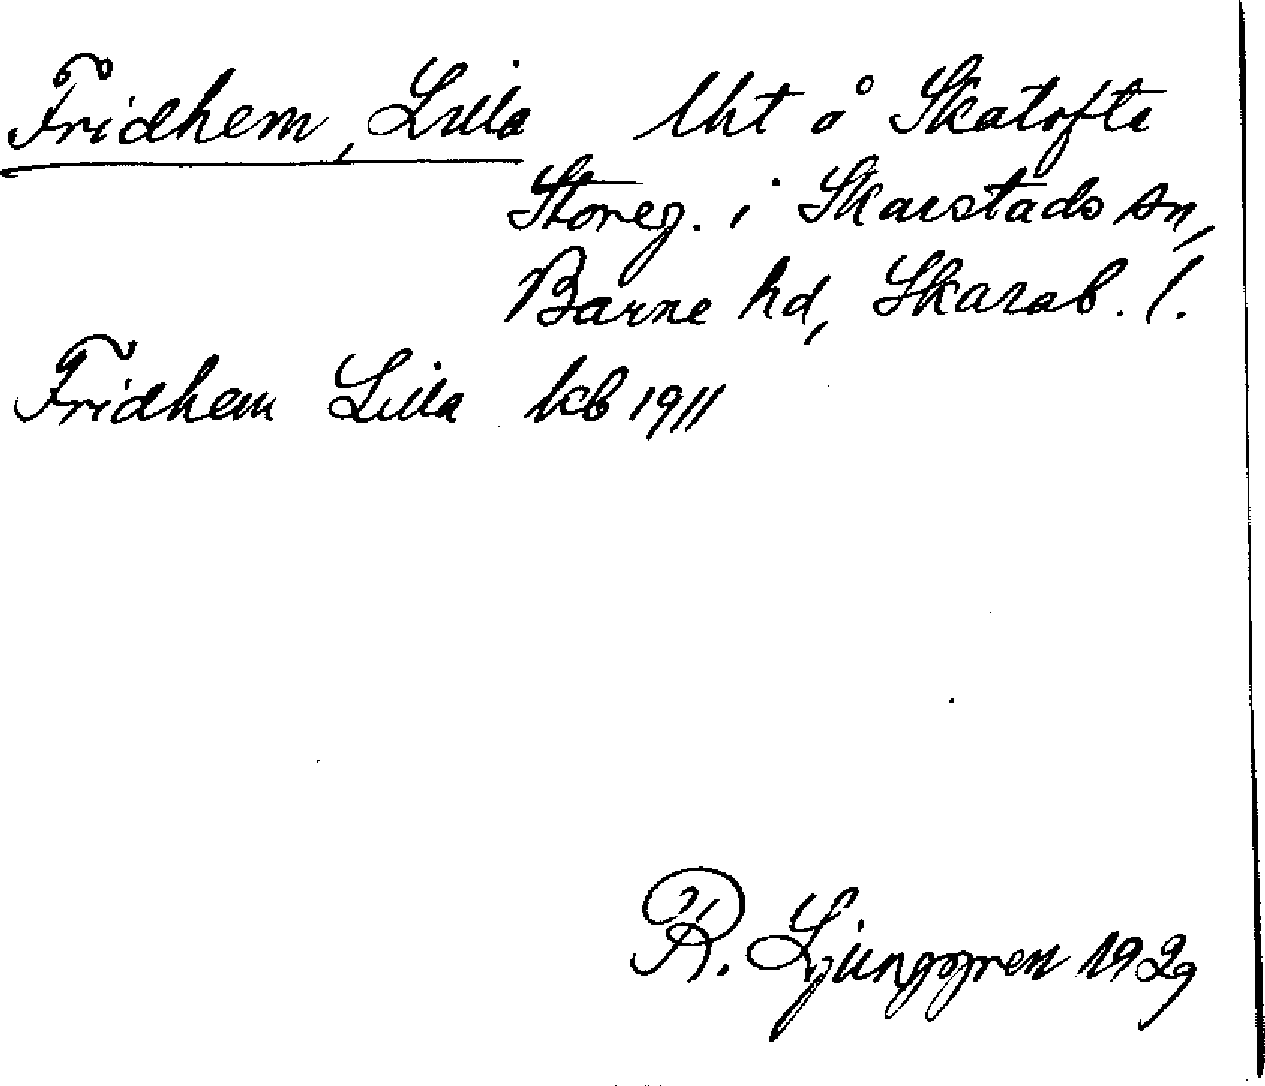 Fridhem, Lilla lht å Skatofta
Storeg. i Skarstads sn,
Barne hd, Skarab. l.
Fridhem Lilla kb 1911
R. Ljunggren 1929